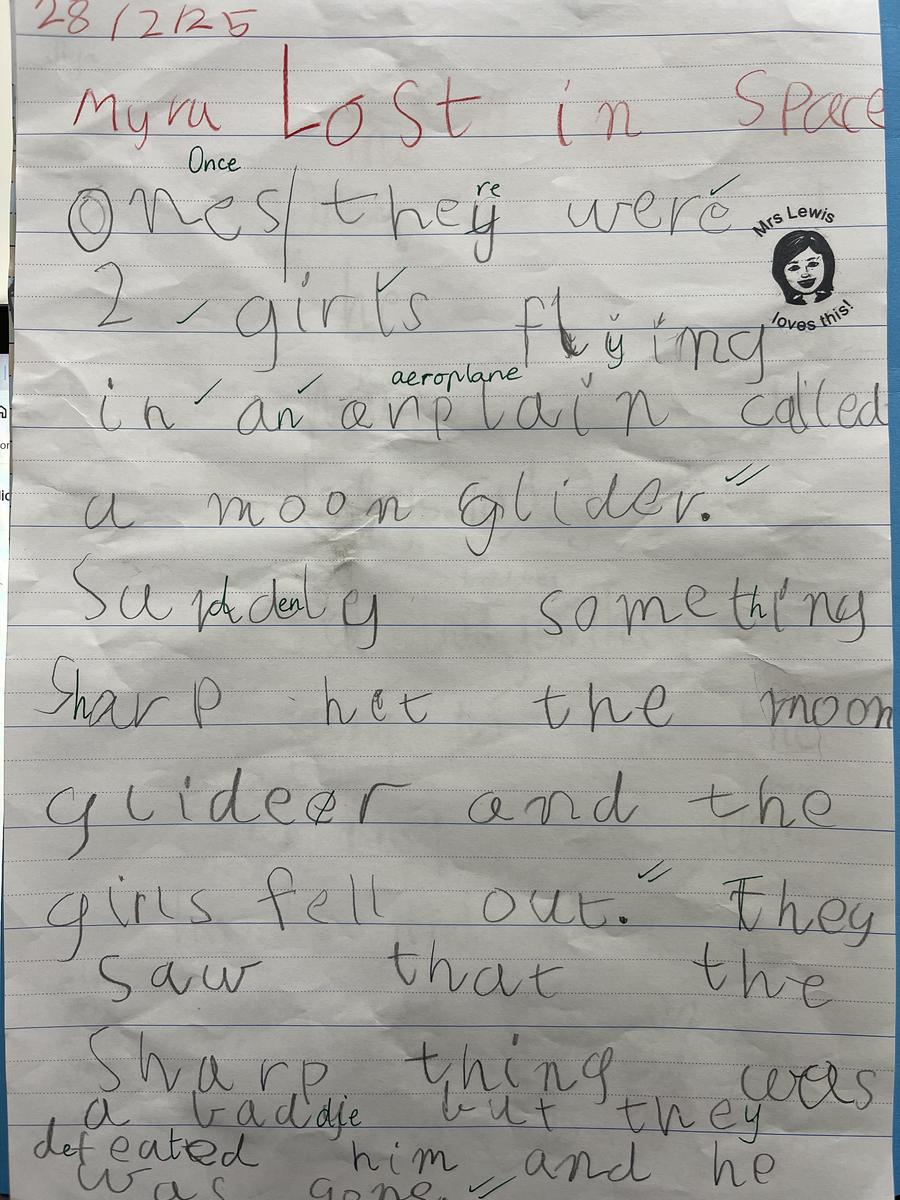 28/2/25
Myra Lost in Space
Once
Ones/ they were
re
Mrs Lewis
loves this!
2 girls flying
aeroplane
in an arplain called
a moon glider.
Suddenly something
Sharp het the moon
glideer and the
girls fell out. They
saw that the
Sharp thing was
a baddie but they
defeated him and he
was gone.